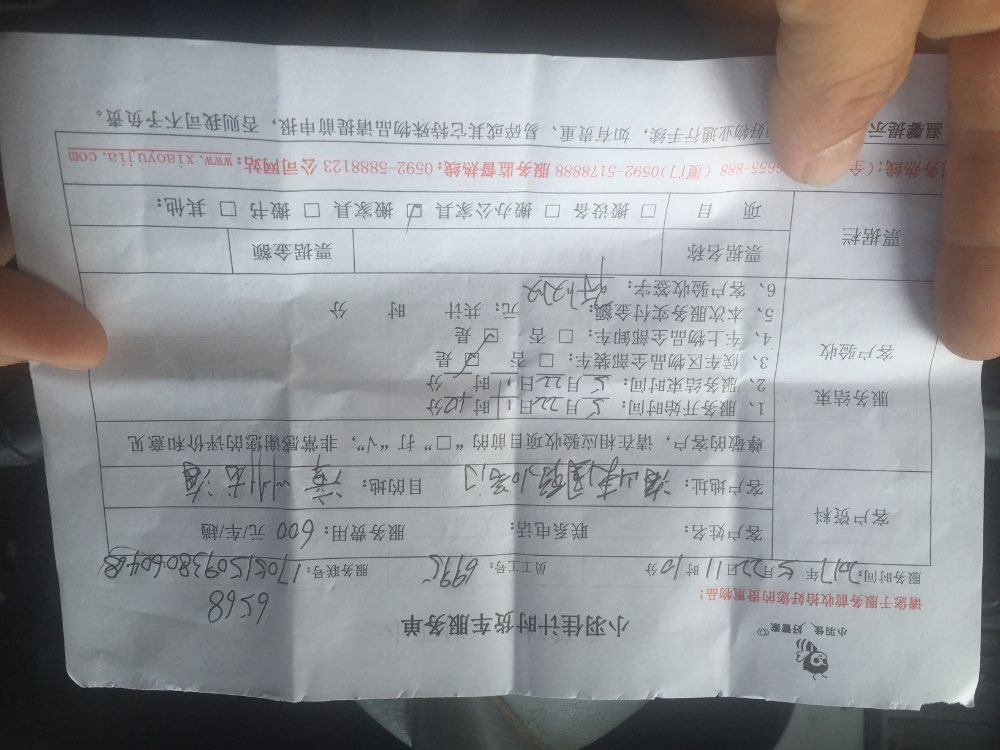 小羽佳 好管家
小羽佳计时货车服务单
6568
请您于服务前收拾好您的贵重物品！
服务时间：2017年5月22日11时10分 员工工号：6995 服务联号：17051509380604
客户资料
客户姓名： 联系电话： 服务费用：600元/车/趟
客户地址： 10号门 目的地：漳州
尊敬的客户，请在相应验收项目前的“□”打“√”，非常感谢您的评价和意见
服务结束
客户验收
1、服务开始时间：5月22日11时40分
2、服务结束时间：5月22日 时 分
3、候车区物品全部装车：□ 否 ☑ 是
4、车上物品全部卸车：□ 否 ☑ 是
5、本次服务实付金额： 元；共计 时 分
6、客户验收签字：
票据栏
票据名称 票据金额
项 目 □ 搬设备 □ 搬办公家具 ☑ 搬家具 □ 搬书 □ 其他：
务热线：（全 6655-888 （厦门）0592-5178888 服务监督热线：0592-5888123 公司网站：www.xiaoyujia.com
温馨提示 好物业通行手续，如有贵重、易碎或其它特殊物品请提前申报，否则我司不予负责。